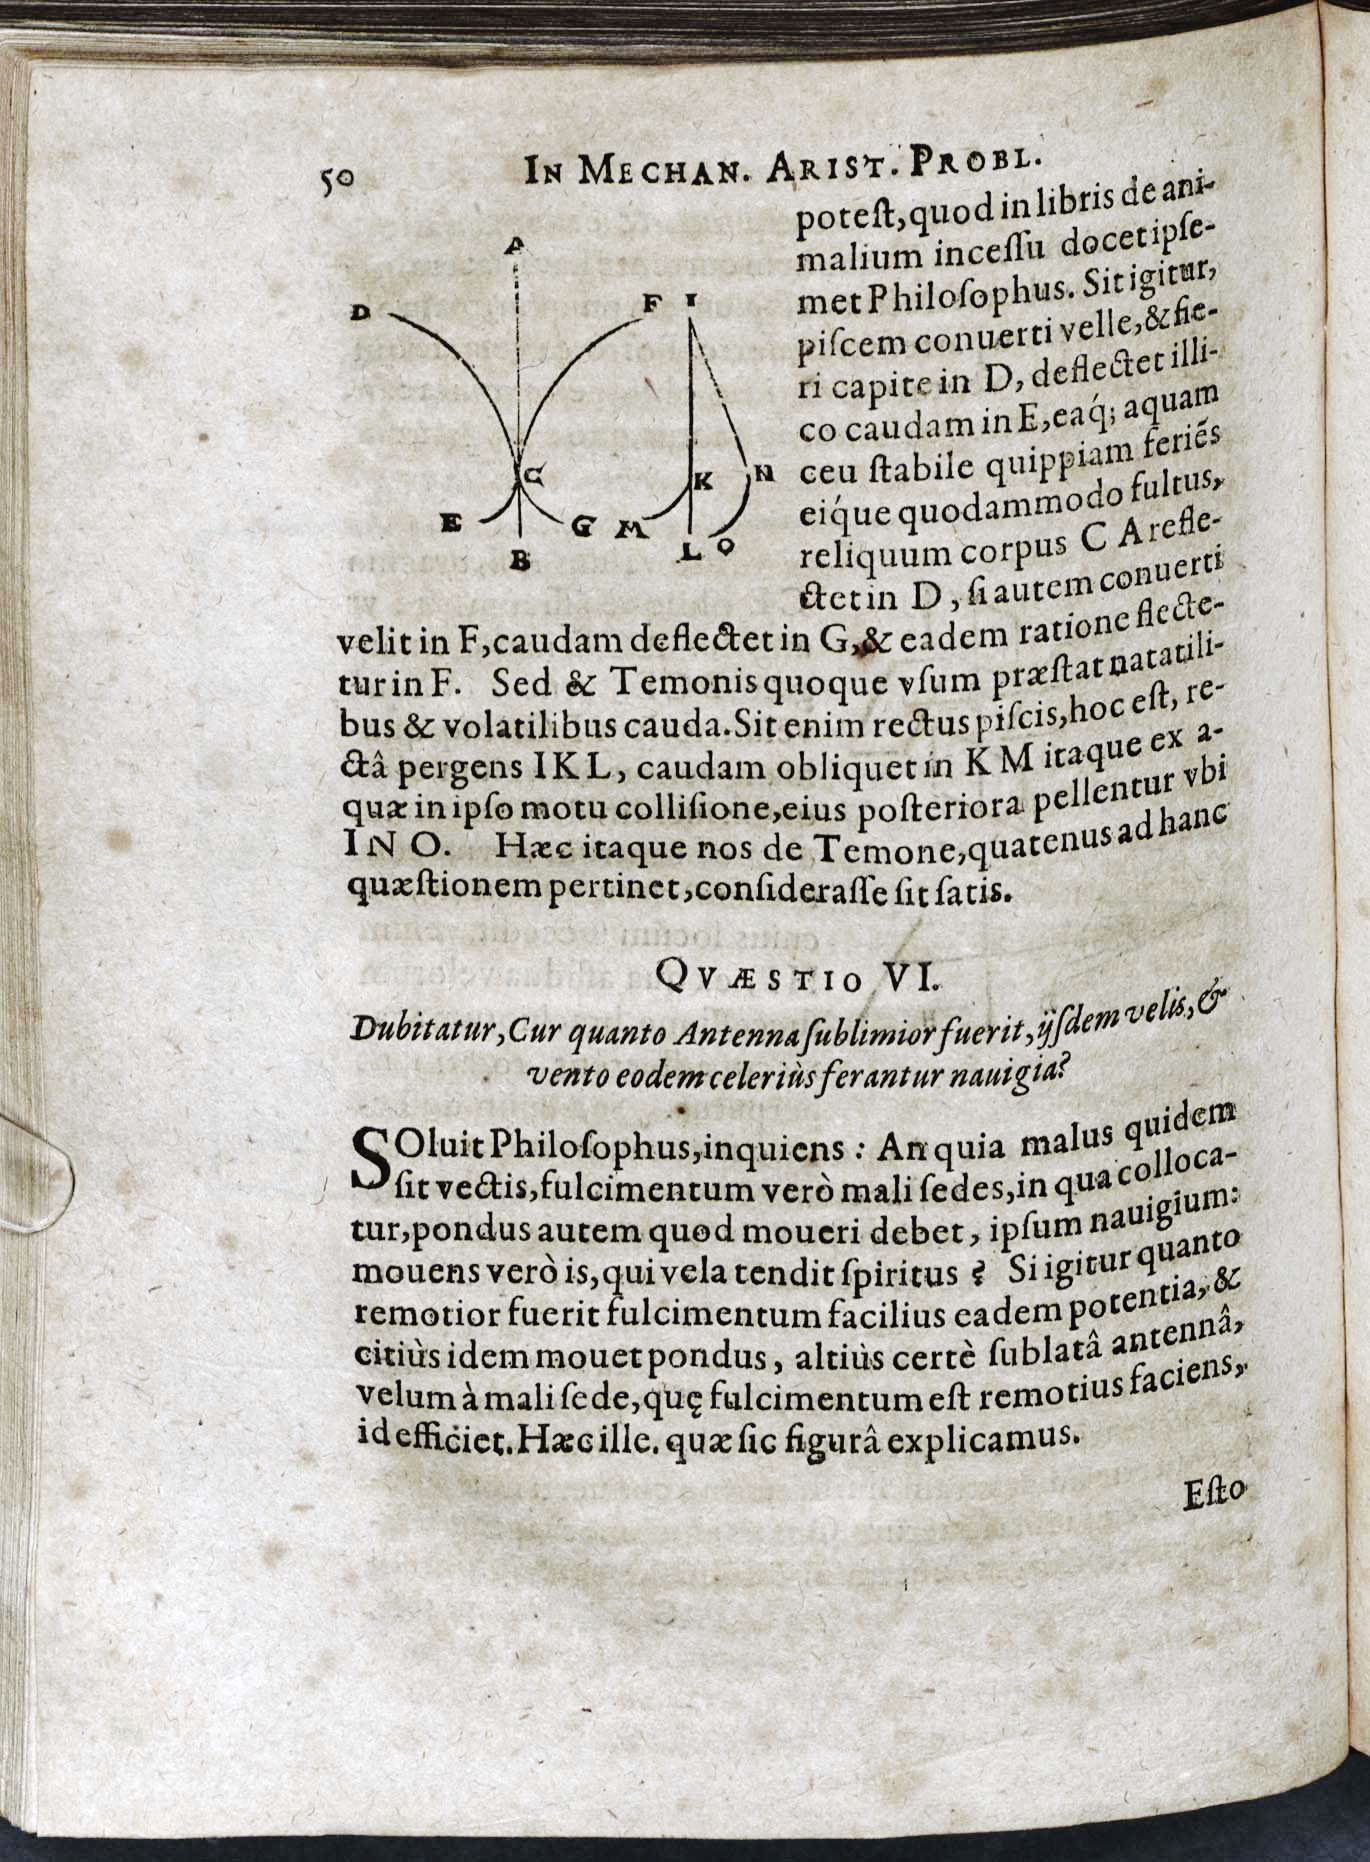 50 IN MECHAN. ARIST. PROBL.
A
D F I
C K N
E G M
B L O
poteſt, quod in libris de ani-
malium inceſſu docet ipſe-
met Philoſophus. Sit igitur,
piſcem conuerti velle, & fie-
ri capite in D, deflectet illi-
co caudam in E, eaq́; aquam
ceu ſtabile quippiam feriẽs
eiq́ue quodammodo fultus,
reliquum corpus C A refle-
ctet in D, ſi autem conuerti
velit in F, caudam deflectet in G, & eadem ratione flecte-
tur in F. Sed & Temonis quoque vſum præſtat natatili-
bus & volatilibus cauda. Sit enim rectus piſcis, hoc eſt, re-
ctâ pergens I K L, caudam obliquet in K M itaque ex a-
quæ in ipſo motu colliſione, eius poſteriora pellentur vbi
I N O. Hæc itaque nos de Temone, quatenus ad hanc
quæſtionem pertinet, conſideraſſe ſit ſatis.
QVÆSTIO VI.
Dubitatur, Cur quanto Antenna ſublimior fuerit, ijſdem velis, &
vento eodem celeriùs ferantur nauigia?
SOluit Philoſophus, inquiens: An quia malus quidem
ſit vectis, fulcimentum verò mali ſedes, in qua colloca-
tur, pondus autem quod moueri debet, ipſum nauigium:
mouens verò is, qui vela tendit ſpiritus? Si igitur quanto
remotior fuerit fulcimentum facilius eadem potentia, &
citiùs idem mouet pondus, altiùs certè ſublatâ antennâ,
velum à mali ſede, quę fulcimentum eſt remotius faciens,
id efficiet. Hæc ille. quæ ſic figurâ explicamus.
Eſto